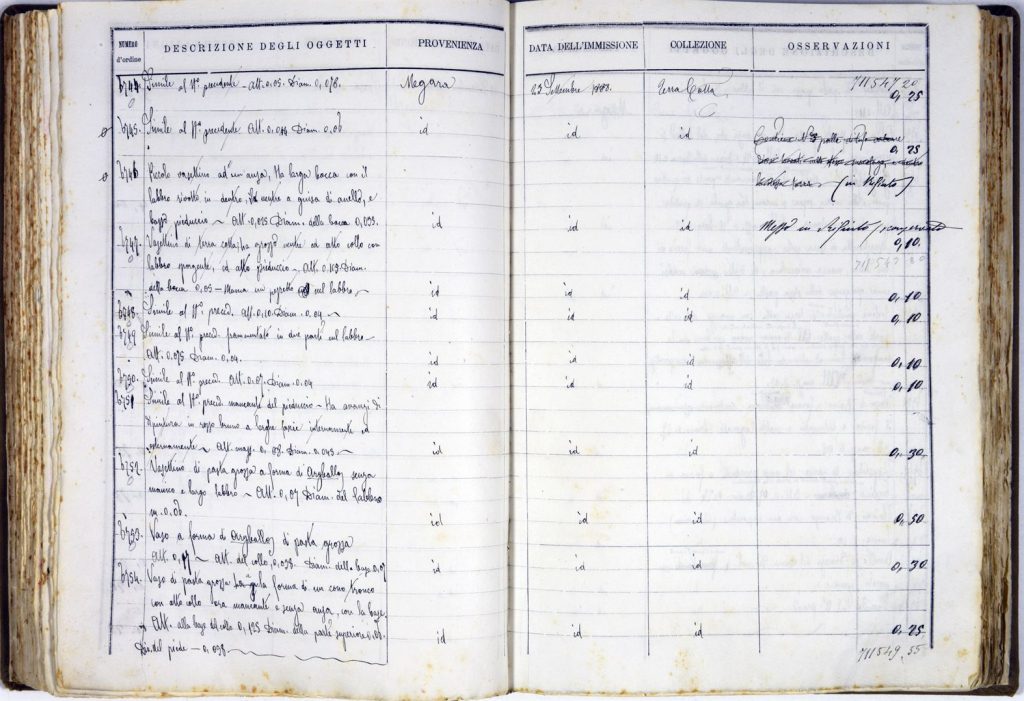 NUMERO d'ordine DESCRIZIONE DEGLI OGGETTI PROVENIENZA DATA DELL'IMMISSIONE COLLEZIONE OSSERVAZIONI
711547 20
6744. Simile al N.º precedente - Alt. 0,05. Diam. 0,078. Megara 23 Settembre 1888. Terra Cotta 0,25
6745. Simile al N.º precedente Alt. 0,044 Diam. 0,06 id id id
0,25
6746. Piccolo vasettino ad un ansa, Ha larga bocca con il (in Rifiuto)
labbro rivolto in dentro, ventre a guisa di anello, e
basso pieduccio ~ Alt. 0,025 Diam. della bocca 0,035. id id id Messo in Rifiuto
6747. Vasettino di terra cotta, ha grosso ventre ed alto collo con 0,10
labbro sporgente, ed alto pieduccio - Alt. 0,109 Diam. 711547 30
della bocca 0,05 - Manca un pezzetto nel labbro ~ id id id 0,10
6748. Simile al N.º preced. Alt. 0,10. Diam. 0,04 ~ id id id 0,10
6749. Simile al N.º preced. frammentato in due parti nel labbro -
Alt. 0,075 Diam. 0,04. id id id 0,10
6750. Simile al N.º preced. Alt. 0,07. Diam. 0,04 id id id 0,10
6751. Simile al N.º preced. mancante del pieduccio - Ha avanzi di
dipintura in rosso bruno a larghe fascie internamente ed
esternamente ~ Alt. mass. 0,08. Diam. 0,045 ~ id id id 0,30
6752. Vasettino di pasta grossa a forma di Aryballos senza
manico e largo labbro ~ Alt. 0,07 Diam. del labbro
m. 0,06. id id id 0,50
6753. Vaso a forma di Aryballos di pasta grossa
Alt. 0,17 ~ Alt. del collo 0,035. Diam. della base 0,07 id id id 0,30
6754. Vaso di pasta grossa forma di un cono tronco
con alto collo ora mancante e senza ansa, con la base
Alt. alla base del collo 0,125 Diam. della parte superiore 0,08. id id id 0,25
Dia. del piede - 0,038 711549.55